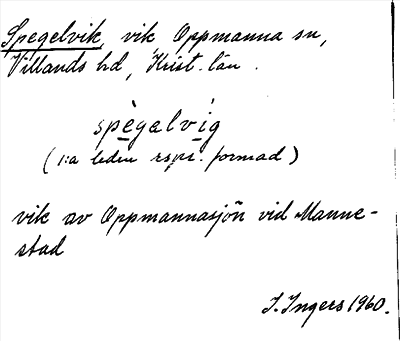 Spegelvik, vik Oppmanna sn,
Villands hd, Krist. län.
spègalvig
(1:a leden rspr. formad)
vik av Oppmannasjön vid Manne-
stad
I. Ingers 1960.